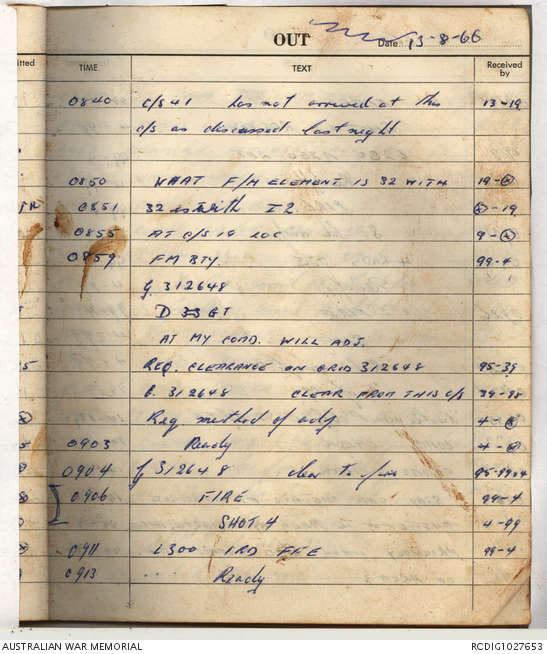 OUT Date 13-8-66
itted TIME TEXT Received by
0840 C/S 41 has not arrived at this 13-19
c/s as discussed last night
0850 WHAT F/M ELEMENT IS 32 WITH 19-
0851 32 is with I2 -19
0855 AT C/S 19 LOC 9-
0859 FM BTY. 99-4
G 312648
D GT
AT MY COMD. WILL ADJ.
REQ. CLEARANCE ON GRID 312648 95-39
G. 312648 CLEAR FROM THIS C/S
Req. method of adj 4-
0903 Ready 4-
0904 G 312648 clear to fire
0906 FIRE 99-4
SHOT 4 4-99
0911 L300 1RD FFE 99-4
0913 ... Ready
AUSTRALIAN WAR MEMORIAL RCDIG1027653